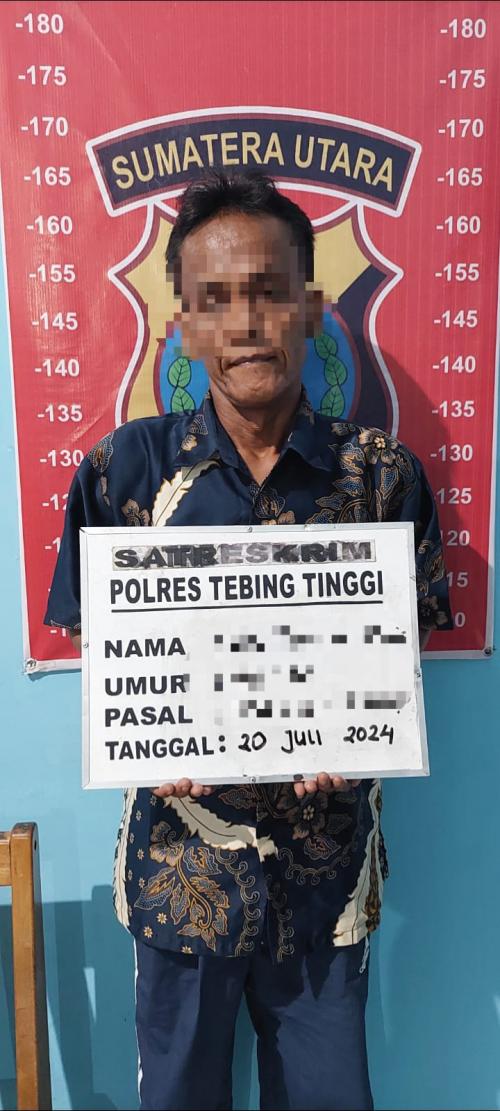 -180 -180
-175 -175
-170 -170
SUMATERA UTARA
-165 -165
-160 -160
-155 -155
-145 -145
-140 -140
-135 -135
-130 -130
125
20
15
0
SATRESKRIM
POLRES TEBING TINGGI
NAMA :
UMUR :
PASAL :
TANGGAL: 20 JULI 2024